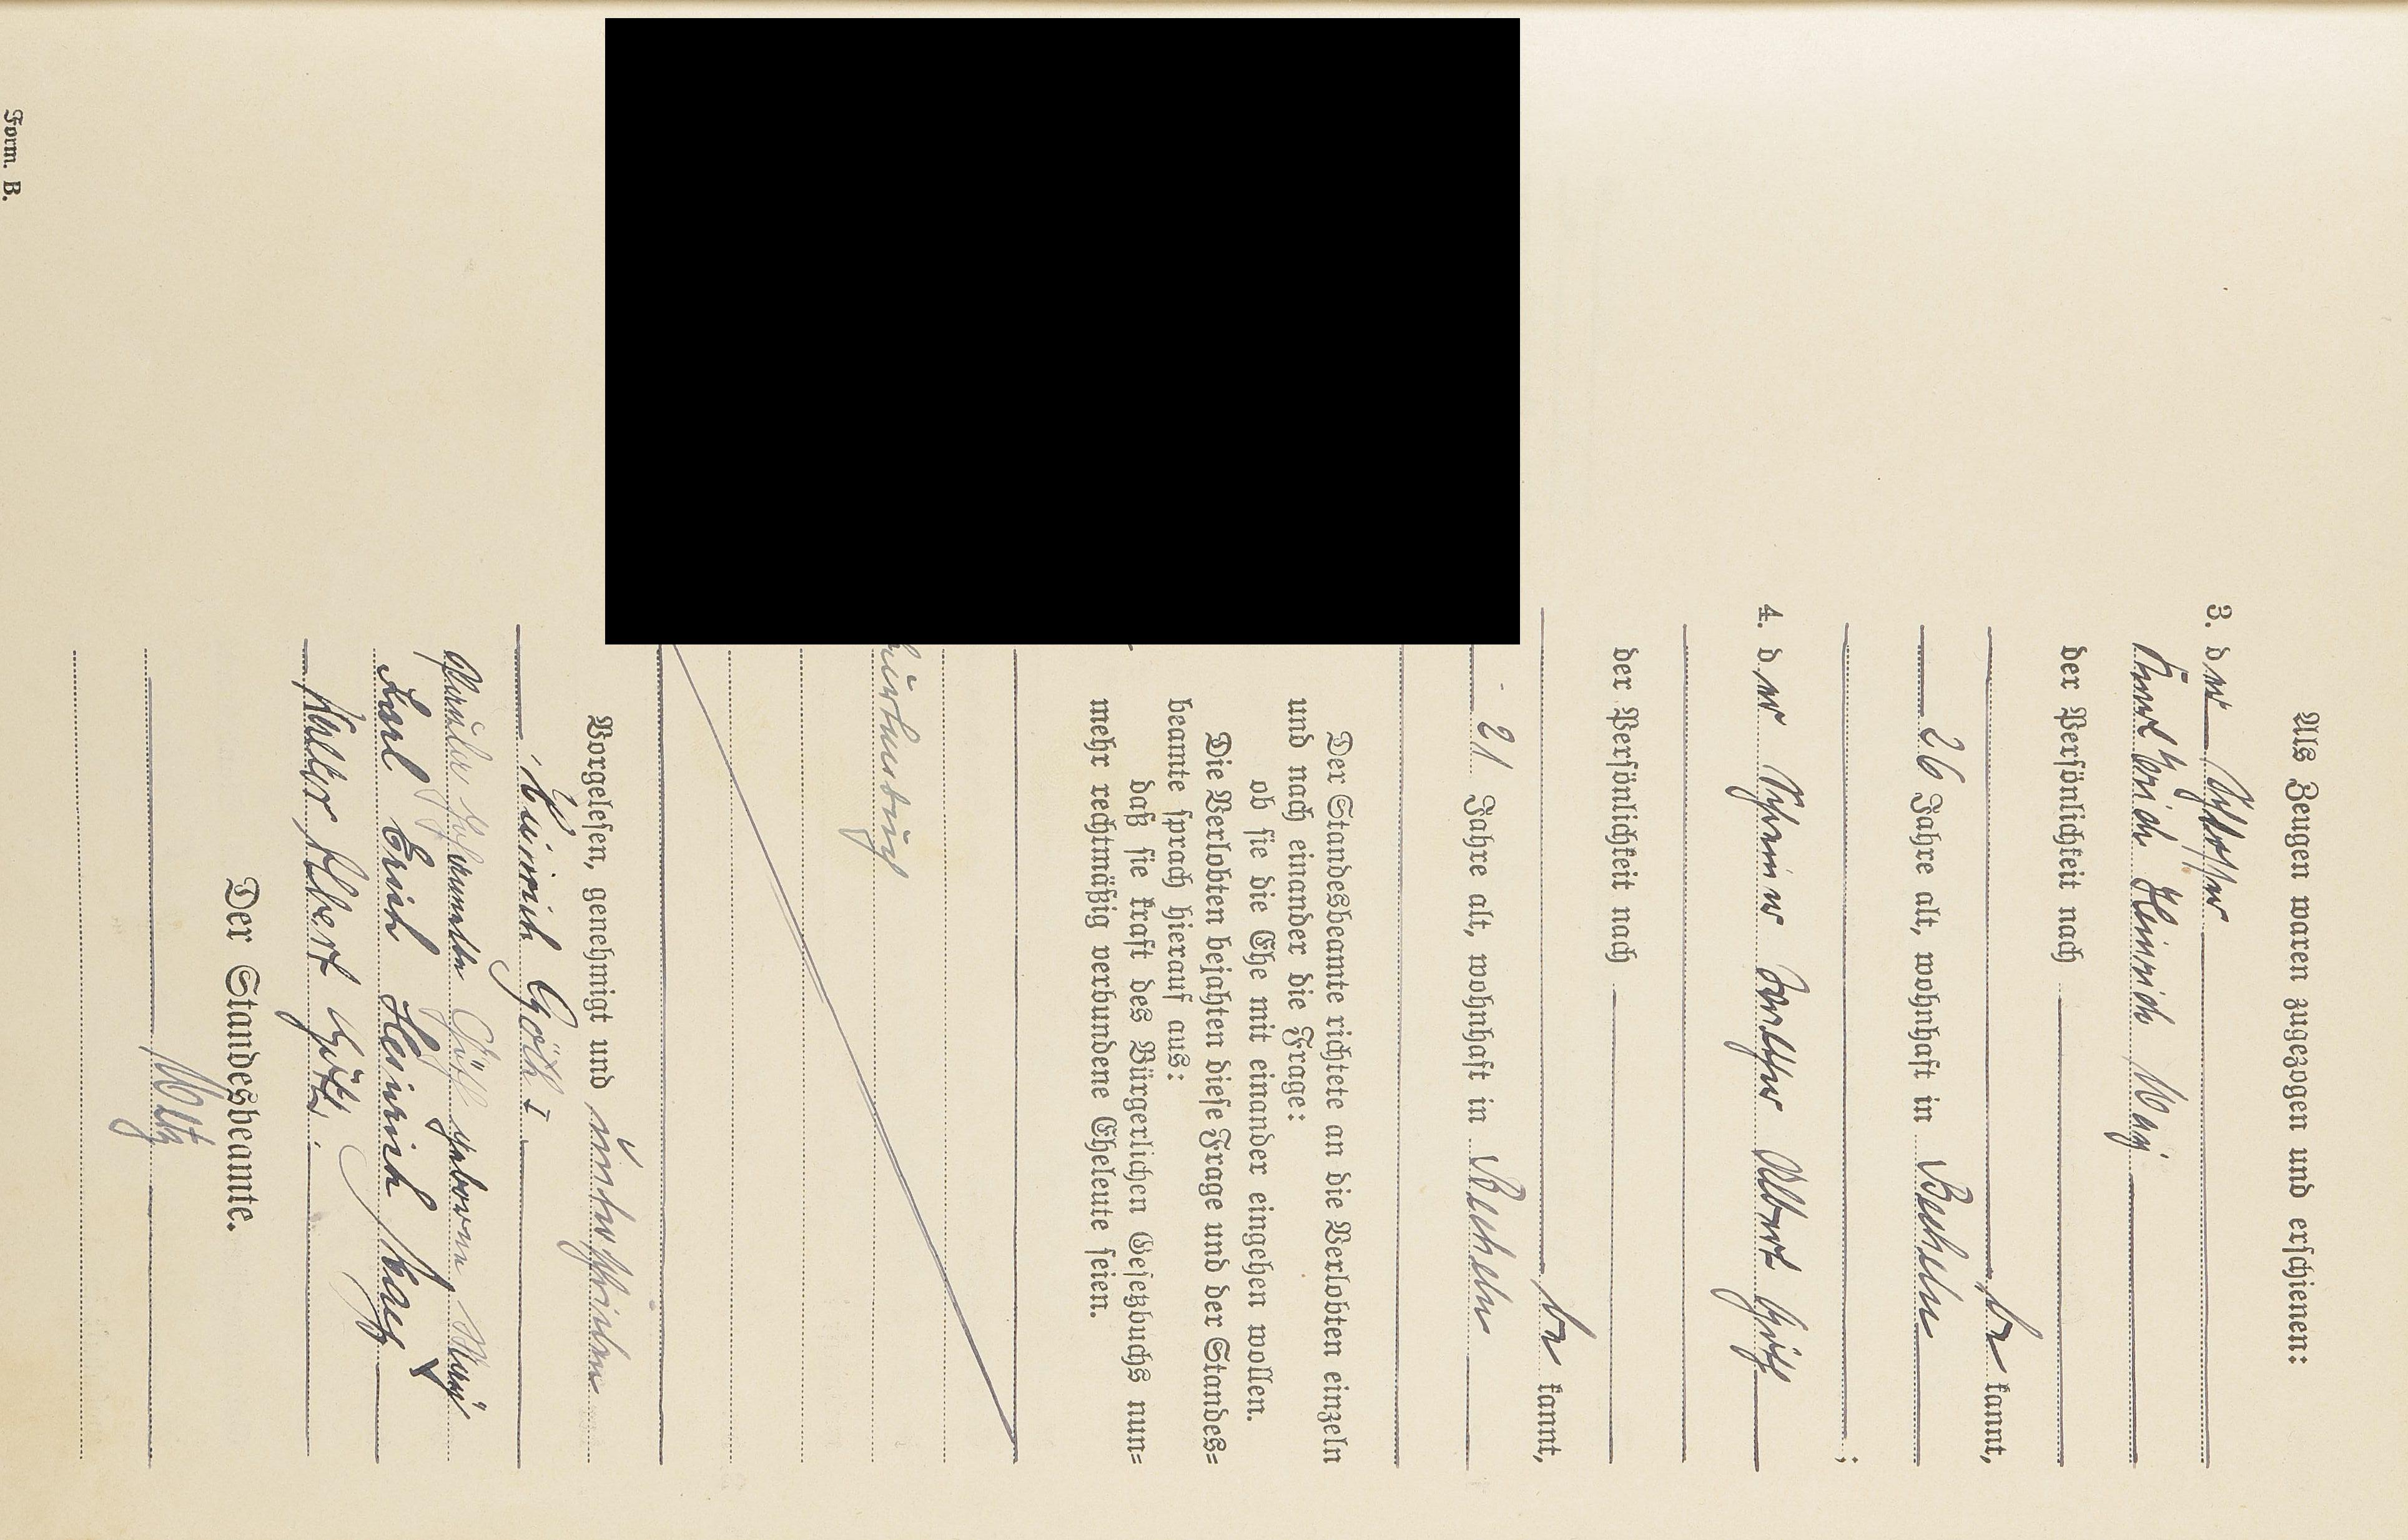 Als Zeugen waren zugezogen und erschienen:
3. der Schlosser
Karl Erich Heinrich May
der Persönlichkeit nach
be kannt,
26 Jahre alt, wohnhaft in Bucheln
;
4. der Schreiner Walther Albert Götz
der Persönlichkeit nach
be kannt,
21 Jahre alt, wohnhaft in Bucheln
Der Standesbeamte richtete an die Verlobten einzeln
und nach einander die Frage:
ob sie die Ehe mit einander eingehen wollen.
Die Verlobten bejahten diese Frage und der Standes=
beamte sprach hierauf aus:
daß sie kraft des Bürgerlichen Gesetzbuchs nun=
mehr rechtmäßig verbundene Eheleute seien.
Vorgelesen, genehmigt und unterschrieben
Heinrich Götz I
Johannette Götz geborene May
Karl Erich Heinrich May
Walter Albert Götz.
Der Standesbeamte.
Form. B.